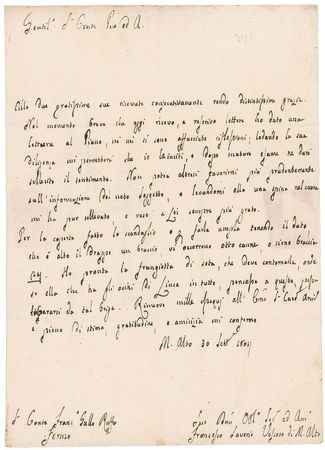 Gentil. Sr Conte Pne ed A.
Alle due gratissime sue ricevute consecutivamente rendo distintissime grazie.
Nel momento breve che oggi ricevo, a riservo lettere ho dato una
lettura al Piano, nè mi si sono affacciate riflessioni: lodando la sua
diligenza mi permetterà che io la imiti, e dopo maturo esame ne darò
sollecito il sentimento. Non potea altresì favorirmi più prudentemente
sull'informazione del noto soggetto, e levandomi una spina nel cuore
mi ha pur sollevato, e reso a Lei sempre più grato.
Per la coperta fatto lo scandaglio e a farla ampla tenendo il dato
che è alto il Drappo un braccio vi occorrono otto canne, o sieno braccia
Ho pronta la frangietta di seta, che deve contornarla, onde
se ella che ha gli occhi di Linea in tutto, pensasse a questa,
da tal briga. Rinuovo mille ossequj all' Emo Sr Card. Arciv.
e pieno di stima, gratitudine, e amicizia mi confermo
M. Alto 30 Sett.
Sr Conte Franc. Gallo
Fermo
Suo Obl. ed
Francesco Vescovo di M. Alto